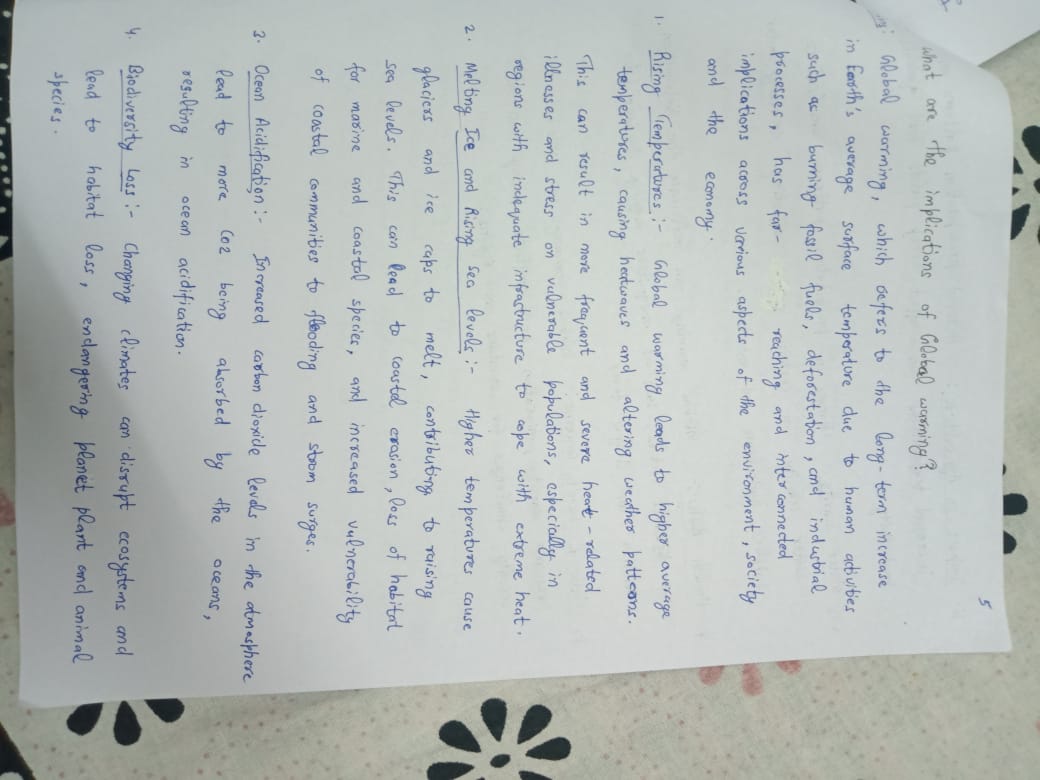 5
What are the implications of Global warming?
Global warming, which refers to the long-term increase
in Earth's average surface temperature due to human activities
such as burning fossil fuels, deforestation, and industrial
processes, has far- reaching and interconnected
implications across various aspects of the environment, society
and the economy.
1. Rising Temperatures :- Global warming leads to higher average
temperatures, causing heatwaves and altering weather patterns.
This can result in more frequent and severe heat-related
illnesses and stress on vulnerable populations, especially in
regions with indequate infrastructure to cope with extreme heat.
2. Melting Ice and Rising Sea levels :- Higher temperatures cause
glaciers and ice caps to melt, contributing to raising
sea levels. This can lead to coastal erosion, loss of habitat
for marine and coastal species, and increased vulnerability
of coastal communities to flooding and storm surges.
3. Ocean Acidification :- Increased carbon dioxide levels in the atmosphere
lead to more CO2 being absorbed by the oceans,
resulting in ocean acidification.
4. Biodiversity Loss :- Changing climates can disrupt ecosystems and
lead to habitat loss, endangering planet plant and animal
species.